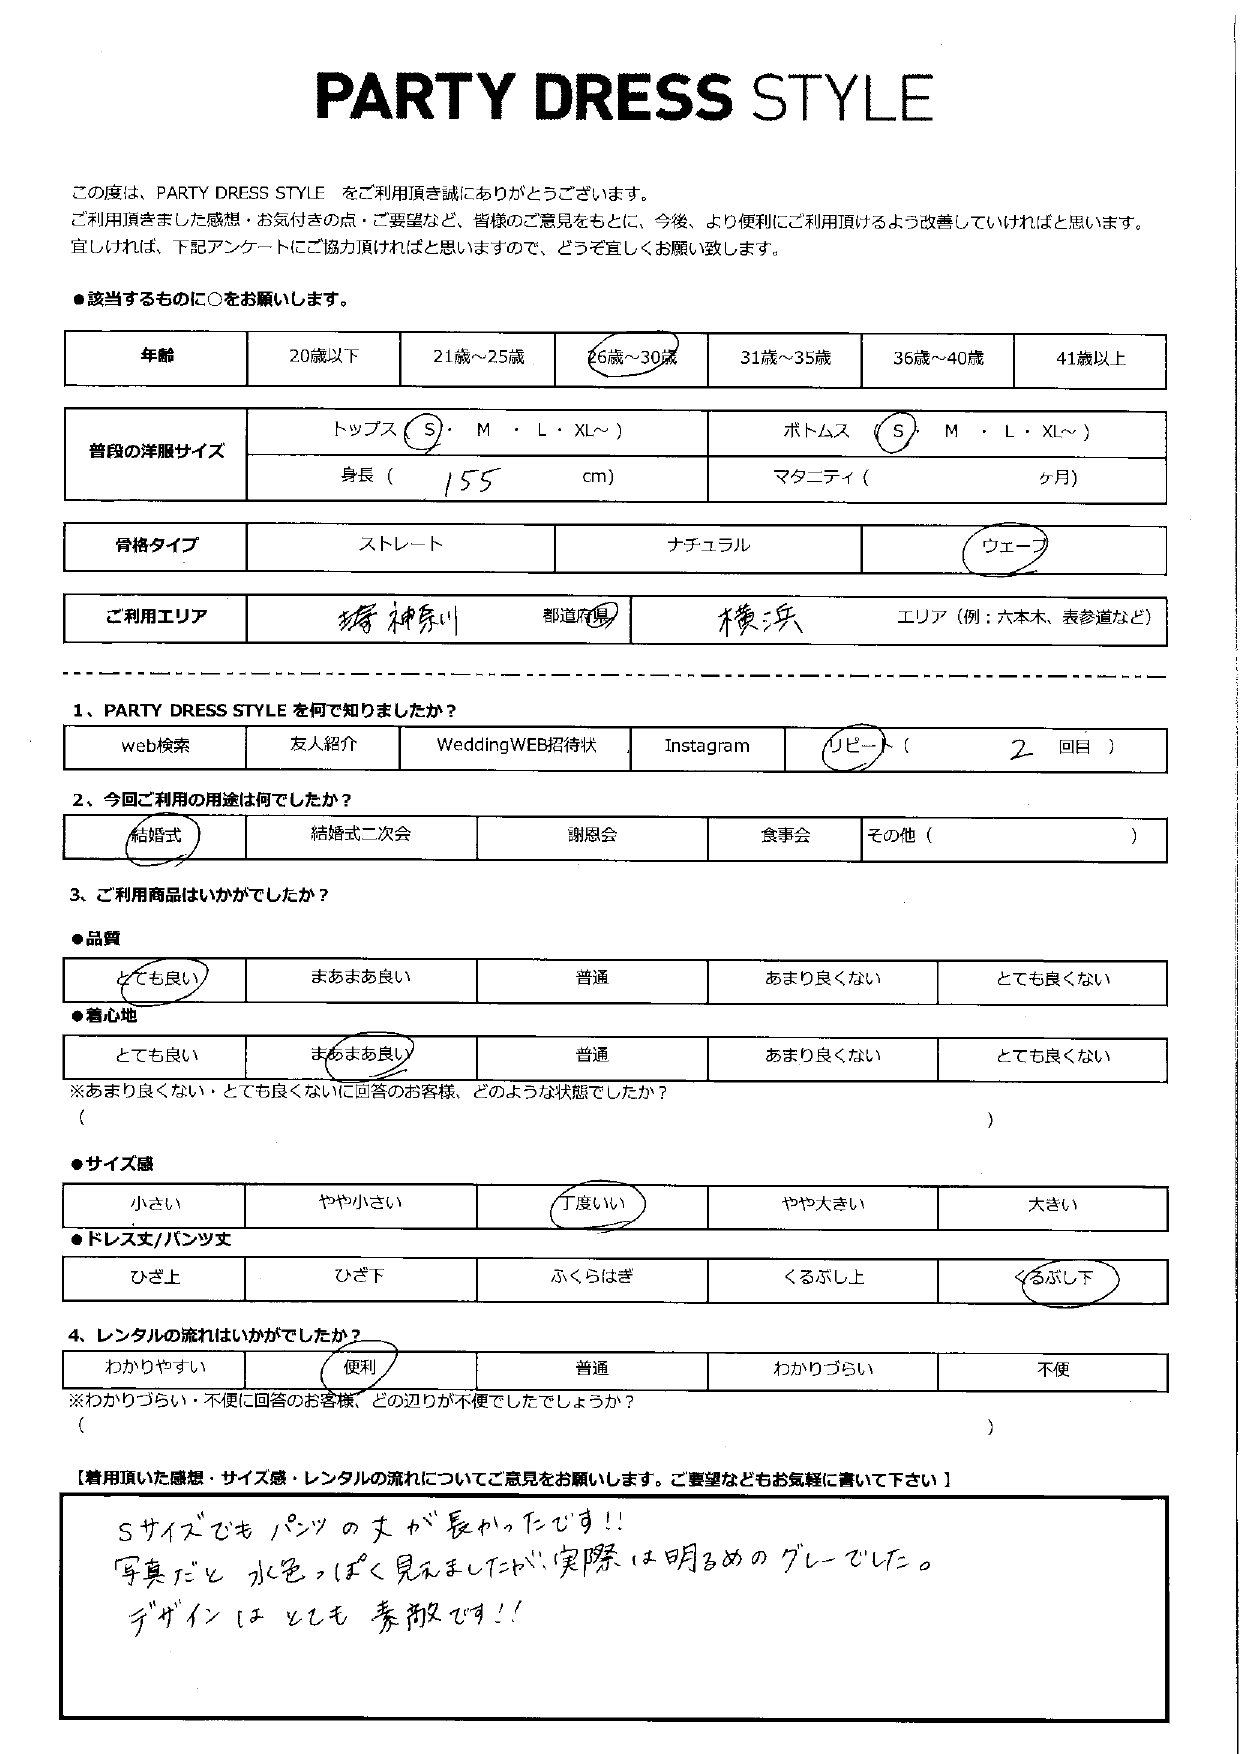 PARTY DRESS STYLE
この度は、PARTY DRESS STYLE をご利用頂き誠にありがとうございます。
ご利用頂きました感想・お気付きの点・ご要望など、皆様のご意見をもとに、今後、より便利にご利用頂けるよう改善していければと思います。
宜しければ、下記アンケートにご協力頂ければと思いますので、どうぞ宜しくお願い致します。
●該当するものに○をお願いします。
年齢 20歳以下 21歳～25歳 26歳～30歳 31歳～35歳 36歳～40歳 41歳以上
普段の洋服サイズ
トップス ( S ・ M ・ L ・ XL～ ) ボトムス ( S ・ M ・ L ・ XL～ )
身長 ( 155 cm) マタニティ ( ヶ月)
骨格タイプ ストレート ナチュラル ウェーブ
ご利用エリア 神奈川 都道府県 横浜 エリア（例：六本木、表参道など）
1、PARTY DRESS STYLE を何で知りましたか？
web検索 友人紹介 WeddingWEB招待状 Instagram リピート ( 2 回目 )
2、今回ご利用の用途は何でしたか？
結婚式 結婚式二次会 謝恩会 食事会 その他 ( )
3、ご利用商品はいかがでしたか？
●品質
とても良い まあまあ良い 普通 あまり良くない とても良くない
●着心地
とても良い まあまあ良い 普通 あまり良くない とても良くない
※あまり良くない・とても良くないに回答のお客様、どのような状態でしたか？
( )
●サイズ感
小さい やや小さい 丁度いい やや大きい 大きい
●ドレス丈/パンツ丈
ひざ上 ひざ下 ふくらはぎ くるぶし上 くるぶし下
4、レンタルの流れはいかがでしたか？
わかりやすい 便利 普通 わかりづらい 不便
※わかりづらい・不便に回答のお客様、どの辺りが不便でしたでしょうか？
( )
【着用頂いた感想・サイズ感・レンタルの流れについてご意見をお願いします。ご要望などもお気軽に書いて下さい 】
Sサイズでも パンツの丈が長かったです!!
写真だと 水色っぽく見えましたが、実際は明るめのグレーでした。
デザインは とても 素敵です!!